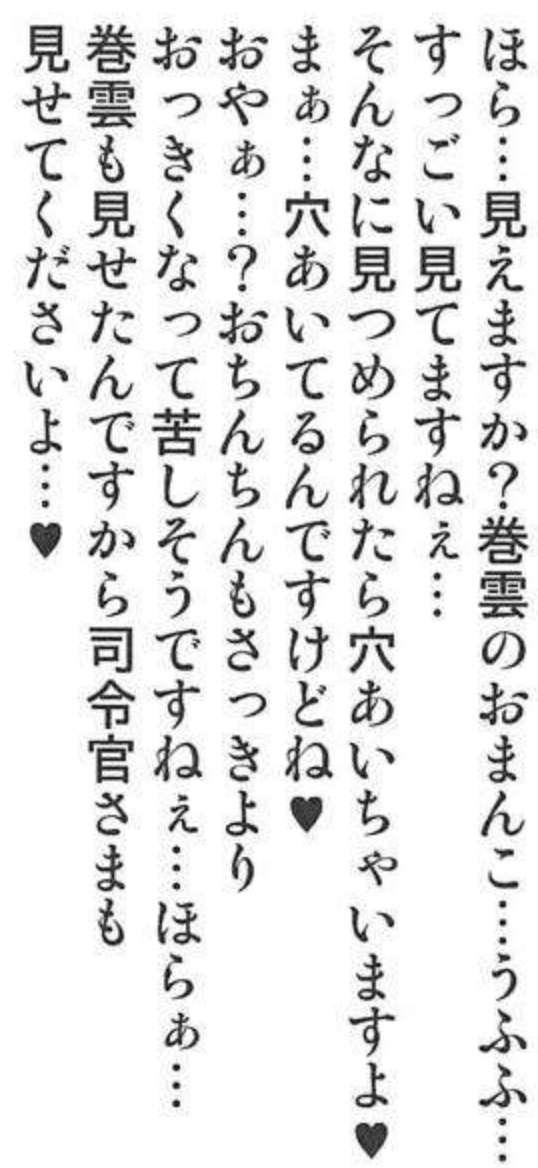 ほら…見えますか？巻雲のおまんこ…うふふ…
すっごい見てますねぇ…
そんなに見つめられたら穴あいちゃいますよ♥
まぁ…穴あいてるんですけどね♥
おやぁ…？おちんちんもさっきより
おっきくなって苦しそうですねぇ…ほらぁ…
巻雲も見せたんですから司令官さまも
見せてくださいよ…♥